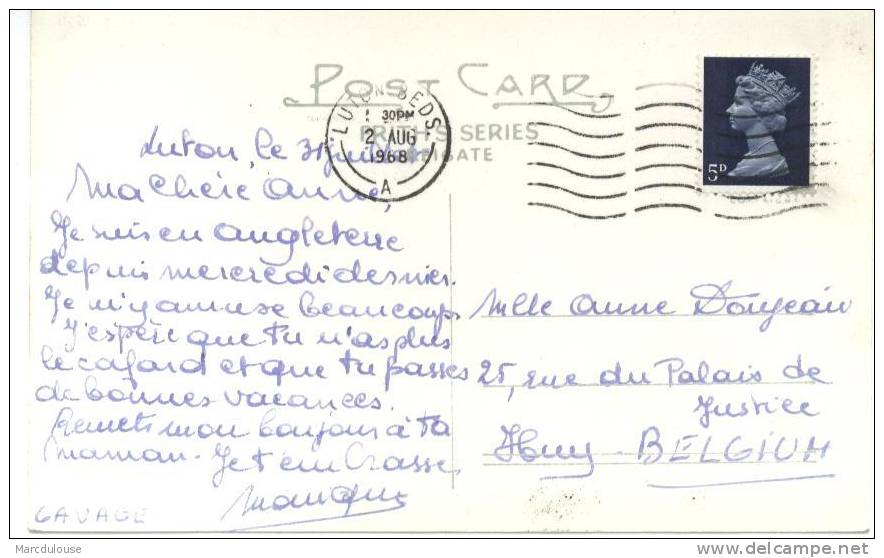 POST CARD
LUTON BEDS.
1 30PM
2 AUG
1968
A
FRITH'S SERIES
REIGATE
5D
Luton, le 31 juillet
Ma Chère Anne,
Je suis en Angleterre
depuis mercredi dernier.
Je m'y amuse beaucoup.
J'espère que tu n'as plus
le cafard et que tu passes
de bonnes vacances.
Remets mon bonjour à ta
maman. Je t'embrasse,
Monique
GAVAGE
Mlle Anne Donjean
25, rue du Palais de
Justice
Huy BELGIUM
Marcdulouse
delcampe.net